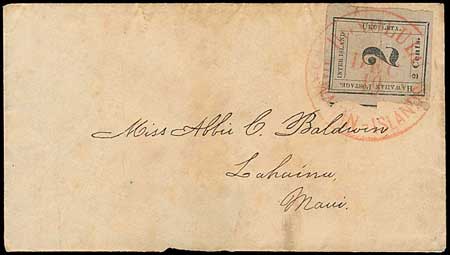 UKU LETA.
INTER ISLAND
2
2 Cents.
HAWAIIAN POSTAGE.
Miss Abbie C. Baldwin
Lahaina,
Maui.